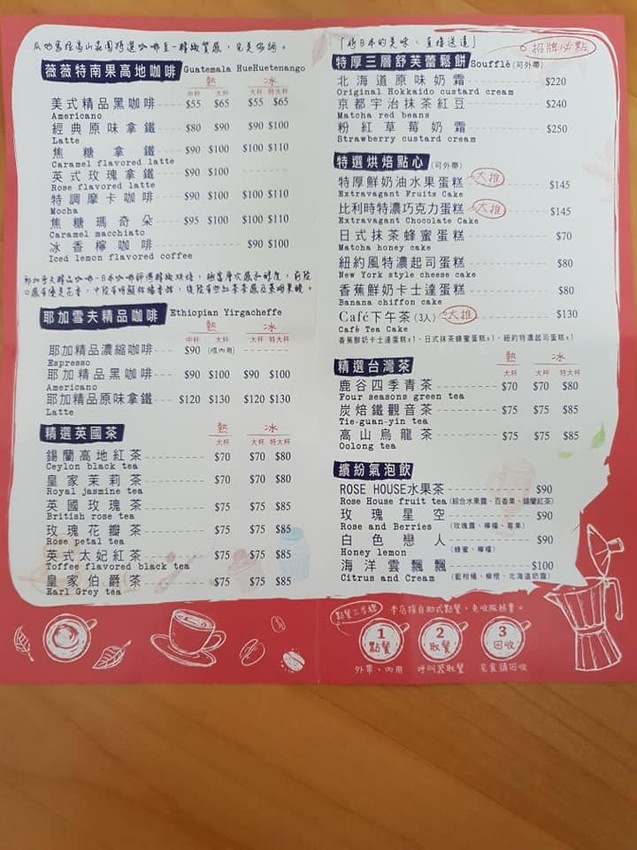 薇薇特南果高地咖啡 Guatemala HueHuetenango
熱 冰
中杯 大杯 大杯 特大杯
美式精品黑咖啡 $55 $65 $55 $65
Americano
經典原味拿鐵 $80 $90 $90 $100
Latte
焦糖拿鐵 $90 $100 $100 $110
Caramel flavored latte
英式玫瑰拿鐵 $90 $100
Rose flavored latte
特調摩卡咖啡 $90 $100 $100 $110
Mocha
焦糖瑪奇朵 $95 $100 $100 $110
Caramel macchiato
冰香檸咖啡 $90 $100
Iced lemon flavored coffee
耶加雪夫精品咖啡 Ethiopian Yirgacheffe
熱 冰
中杯 大杯 大杯 特大杯
耶加精品濃縮咖啡 $90 (限內用)
Espresso
耶加精品黑咖啡 $90 $100 $90 $100
Americano
耶加精品原味拿鐵 $120 $130 $120 $130
Latte
精選英國茶
熱 冰
大杯 大杯 特大杯
錫蘭高地紅茶 $70 $70 $80
Ceylon black tea
皇家茉莉茶 $70 $70 $80
Royal jasmine tea
英國玫瑰茶 $75 $75 $85
British rose tea
玫瑰花瓣茶 $75 $75 $85
Rose petal tea
英式太妃紅茶 $75 $75 $85
Toffee flavored black tea
皇家伯爵茶 $75 $75 $85
Earl Grey tea
「將日本的美味、直接送達」
招牌必點
特厚三層舒芙蕾鬆餅 Soufflè (可外帶)
北海道原味奶霜 $220
Original Hokkaido custard cream
京都宇治抹茶紅豆 $240
Matcha red beans
粉紅草莓奶霜 $250
Strawberry custard cream
特選烘焙點心 (可外帶)
特厚鮮奶油水果蛋糕 大推 $145
Extravagant Fruits Cake
比利時特濃巧克力蛋糕 大推 $145
Extravagant Chocolate Cake
日式抹茶蜂蜜蛋糕 $70
Matcha honey cake
紐約風特濃起司蛋糕 $80
New York style cheese cake
香蕉鮮奶卡士達蛋糕 $80
Banana chiffon cake
Café下午茶 (3人) 大推 $130
Café Tea Cake
香蕉鮮奶卡士達蛋糕x1、日式抹茶蜂蜜蛋糕x1、紐約特濃起司蛋糕x1
精選台灣茶
熱 冰
大杯 大杯 特大杯
鹿谷四季青茶 $70 $70 $80
Four seasons green tea
炭焙鐵觀音茶 $75 $75 $85
Tie-guan-yin tea
高山烏龍茶 $75 $75 $85
Oolong tea
繽紛氣泡飲
ROSE HOUSE水果茶 $90
Rose House fruit tea (綜合水果露、百香果、錫蘭紅茶)
玫瑰星空 $90
Rose and Berries (玫瑰露、檸檬、莓果)
白色戀人 $90
Honey lemon (蜂蜜、檸檬)
海洋雲飄飄 $100
Citrus and Cream (藍柑橘、柳橙、北海道奶霜)
點餐三步驟 本店採自助式點餐，免收服務費。
1 點餐 2 取餐 3 回收
外帶、內用 呼叫器取餐 完食請回收